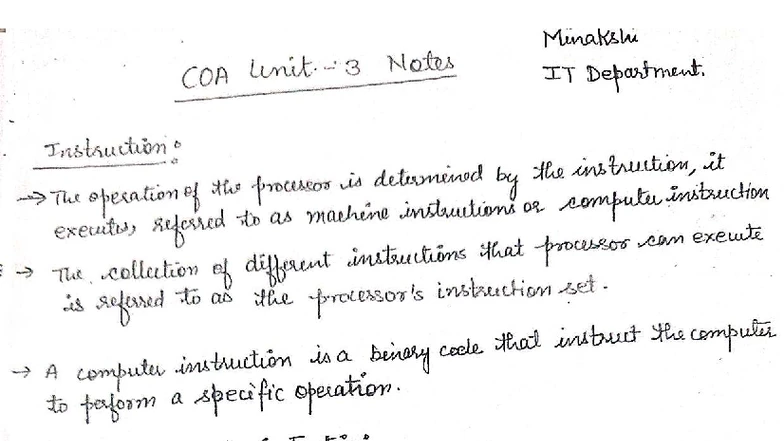 Minakshi
COA Unit - 3 Notes
IT Department.
Instruction:
→ The operation of the processor is determined by the instruction, it
executes, referred to as machine instructions or computer instruction
→ The collection of different instructions that processor can execute
is referred to as the processor's instruction set.
→ A computer instruction is a binary code that instruct the computer
to perform a specific operation.